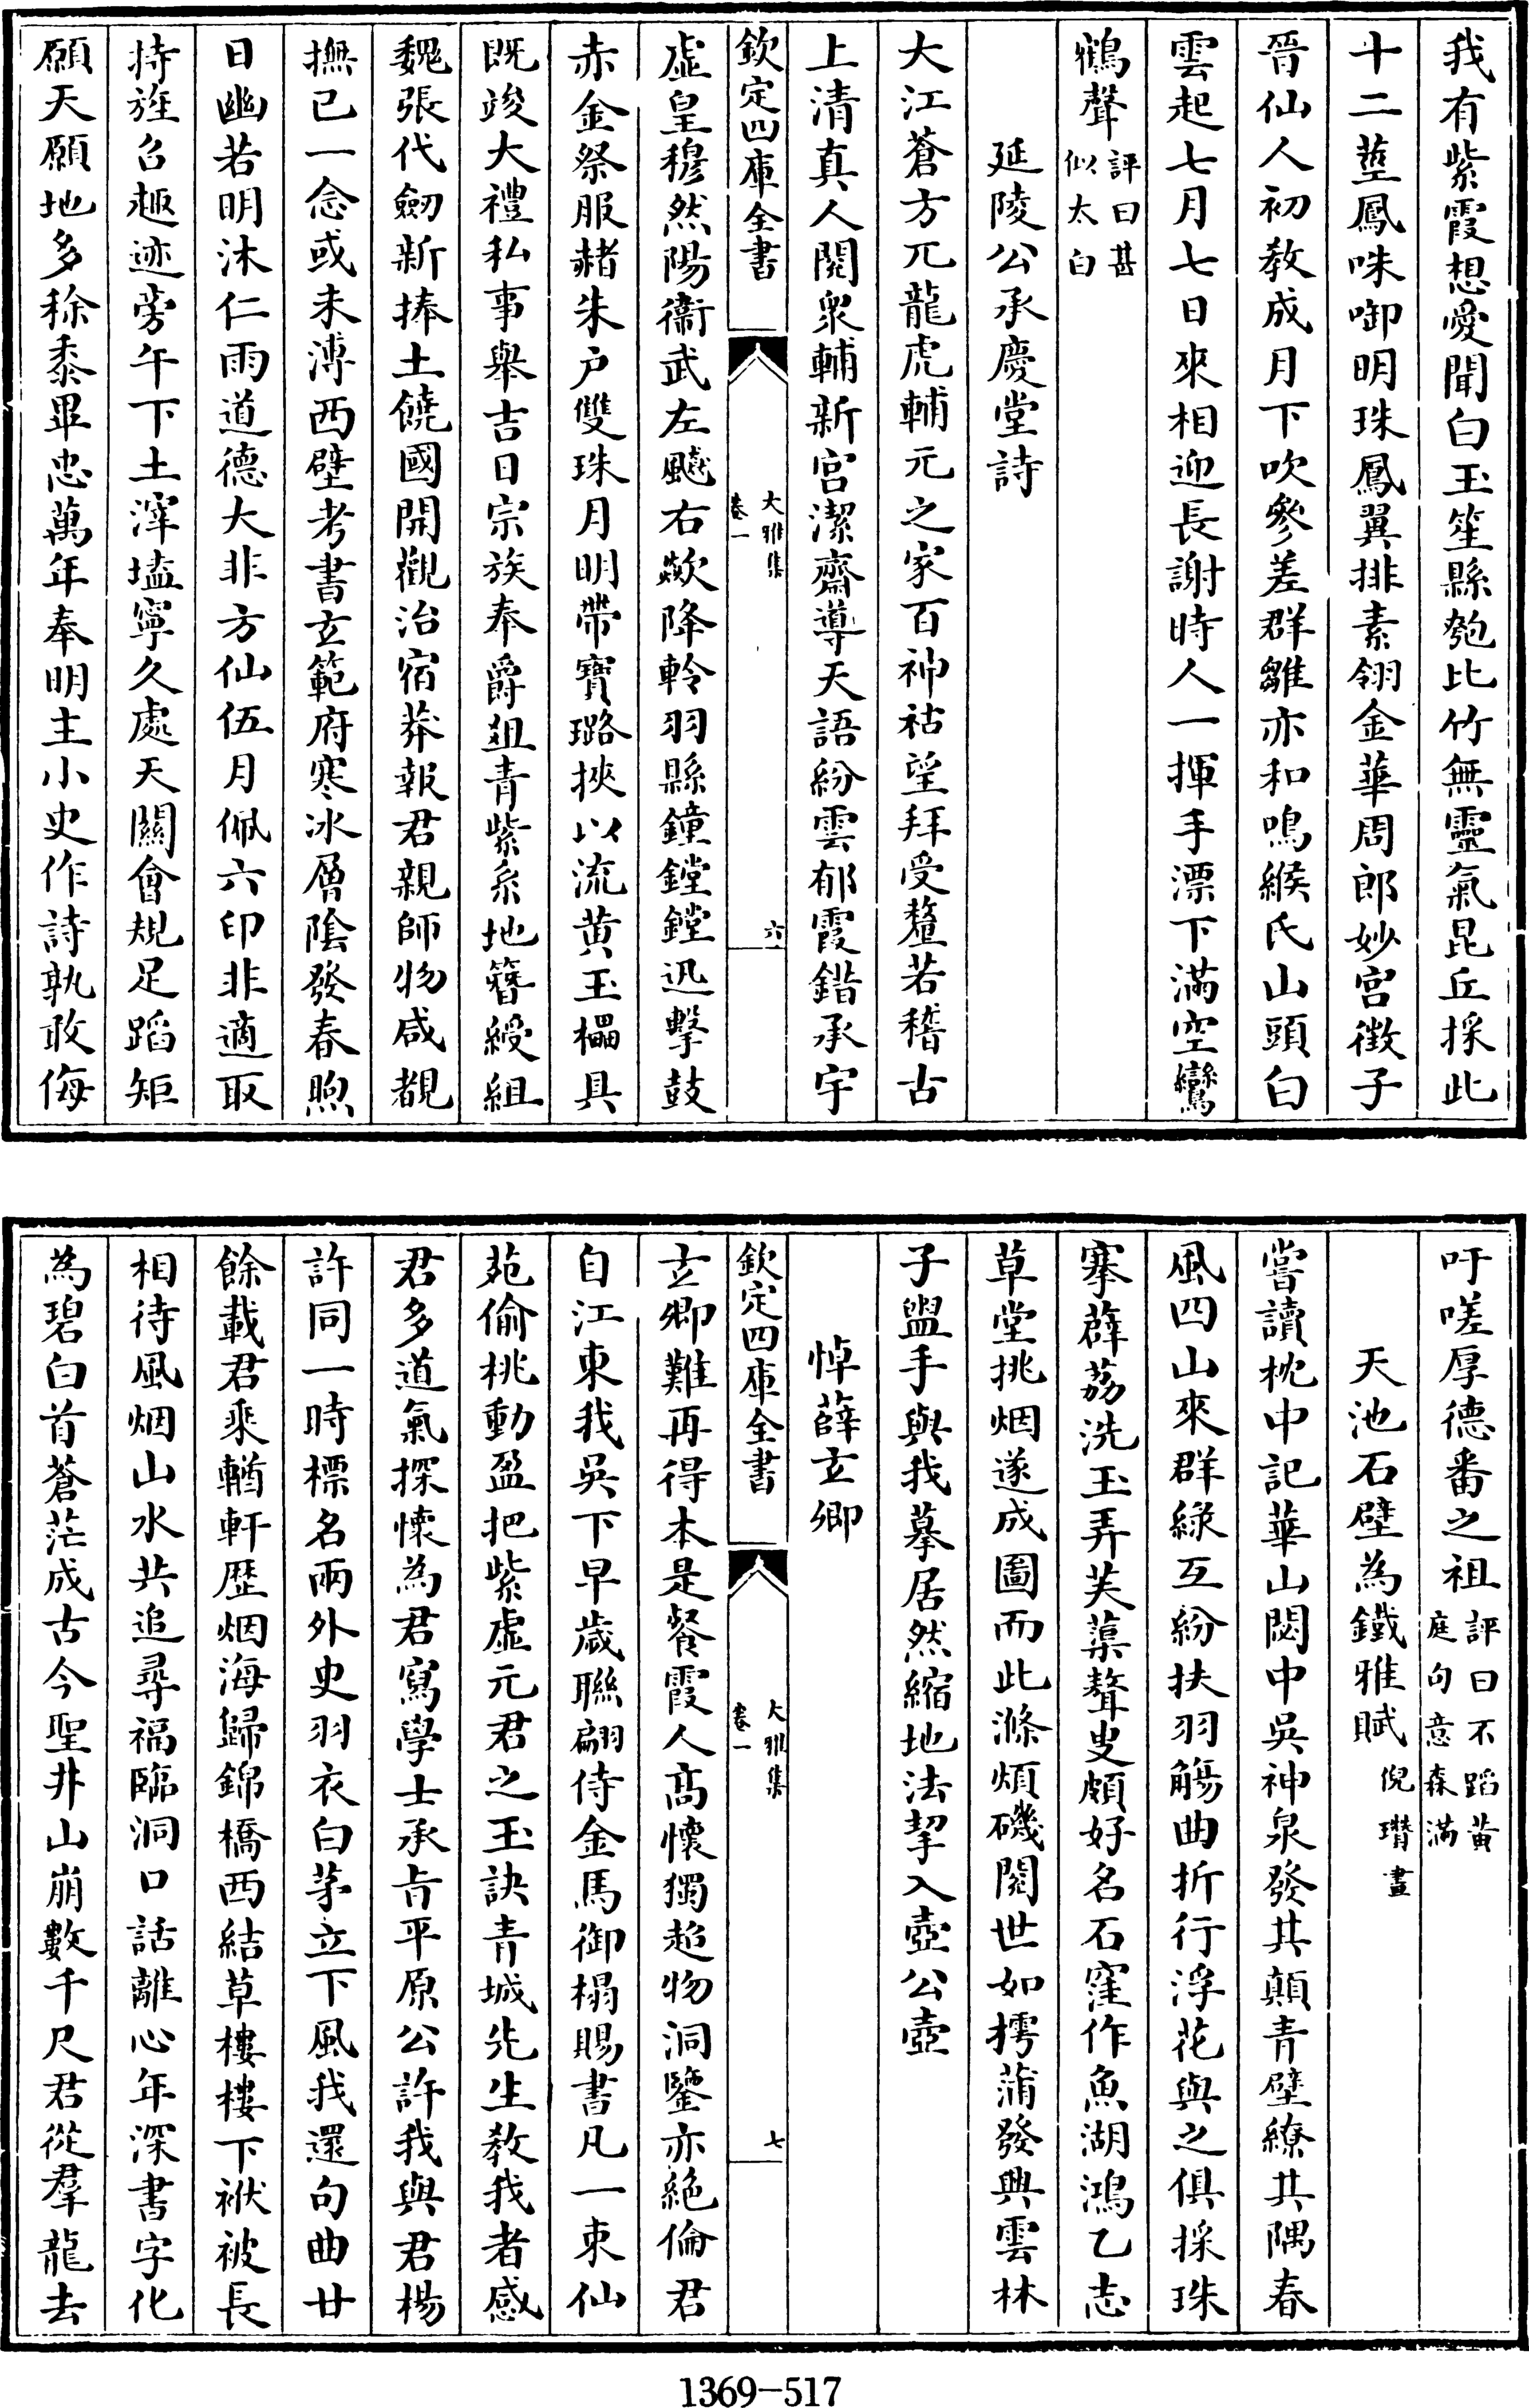 我有紫霞想愛聞白玉笙縣匏比竹無靈氣昆丘採此
十二莖鳳咮啣明珠鳳翼排素翎金華周郎妙宫徴子
晉仙人初教成月下吹參差群雛亦和鳴緱氏山頭白
雲起七月七日來相迎長謝時人一揮手漂下滿空鸞
鶴聲評曰甚似太白
延陵公承慶堂詩
大江蒼方兀龍虎輔元之家百神祜望拜受釐若稽古
上清真人閱衆輔新宫潔齋導天語紛雲郁霞錯承宇
欽定四庫全書
大雅集
卷一
六
虛皇穆然陽衞武左飈右歘降軨羽縣鐘鏜鏜迅擊鼓
赤金祭服赭朱户雙珠月明帶寶璐挾以流黄玉櫑具
既竣大禮私事舉吉日宗族奉爵俎青紫糸地簪綬組
魏張代劒新捧土饒國開觀治宿莽報君親師物咸覩
撫已一念或未溥西壁考書玄範府寒冰層陰發春煦
日幽若明沐仁雨道德大非方仙伍月佩六印非適取
持旌召趣迹旁午下土滓壒寧久處天關會規足蹈矩
願天願地多稌黍畢忠萬年奉明主小史作詩孰敢侮
吁嗟厚德番之祖評曰不蹈黄庭句意森滿
天池石壁為鐵雅賦倪瓚畫
嘗讀枕中記華山閟中吳神泉發其顛青壁繚其隅春
風四山來群綠互紛扶羽觴曲折行浮花與之俱採珠
搴薜荔洗玉弄芙蕖聱叟頗好名石窪作魚湖鴻乙志
草堂挑烟遂成圖而此滌煩磯閱世如摴蒲發興雲林
子盥手與我摹居然縮地法挈入壺公壺
悼薛玄卿
欽定四庫全書
大雅集
卷一
七
玄卿難再得本是餐霞人髙懷獨超物洞鑒亦絶倫君
自江東我吳下早歳聯翩侍金馬御榻賜書凡一束仙
苑偷桃動盈把紫虛元君之玉訣青城先生教我者感
君多道氣探懷為君寫學士承㫖平原公許我與君楊
許同一時標名兩外史羽衣白茅立下風我還句曲廿
餘載君乘輶軒歴烟海歸錦橋西結草樓樓下袱被長
相待風烟山水共追尋福臨洞口話離心年深書字化
為碧白首蒼茫成古今聖井山崩數千尺君從羣龍去
1369-517